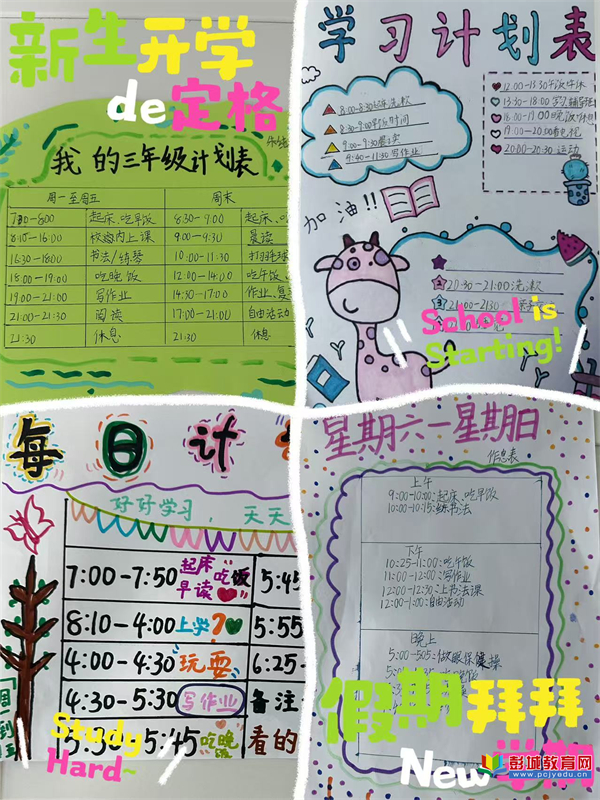 新生开学
de定格
我的三年级计划表
周一至周五 周末
7:30-8:00 起床、吃早饭 8:30-9:00 起床、
8:10-16:00 校内上课 9:00-9:30 晨读
16:30-18:00 书法/练琴 10:00-11:30 打羽毛球
18:00-19:00 吃晚饭 12:00-14:00 吃午饭
19:00-21:00 写作业 14:30-17:00 作业、复
21:00-21:30 阅读 17:00-21:00 自由活动
21:30 休息 21:30 休息
学习计划表
8:00-8:30
8:30-9:00
9:00-9:30
9:40-11:30 写作业
12:00-13:30 午饭午休
13:30-18:00
18:00-19:00 晚饭休息
19:00-20:00
20:00-20:30 运动
加油!!
20:30-21:00 洗漱
21:00-21:30
School is
Starting!
每日计
好好学习,天天
7:00-7:50 起床吃饭早读 5:45
8:10-4:00 上学 5:55
4:00-4:30 玩耍 6:25-
4:30-5:30 写作业 备注
5:30-5:45 吃晚饭 看的
周一到五
Study
Hard~
星期六—星期日
作息表
上午
9:00-10:00:起床、吃早饭
10:00-10:15:练书法
下午
10:25-11:00:吃午饭
11:00-12:00:写作业
12:00-12:30:上书法课
12:00-1:00:自由活动
晚上
5:00-505:做眼保健操
假期拜拜
New学期
彭城教育网
www.pcjyedu.cn